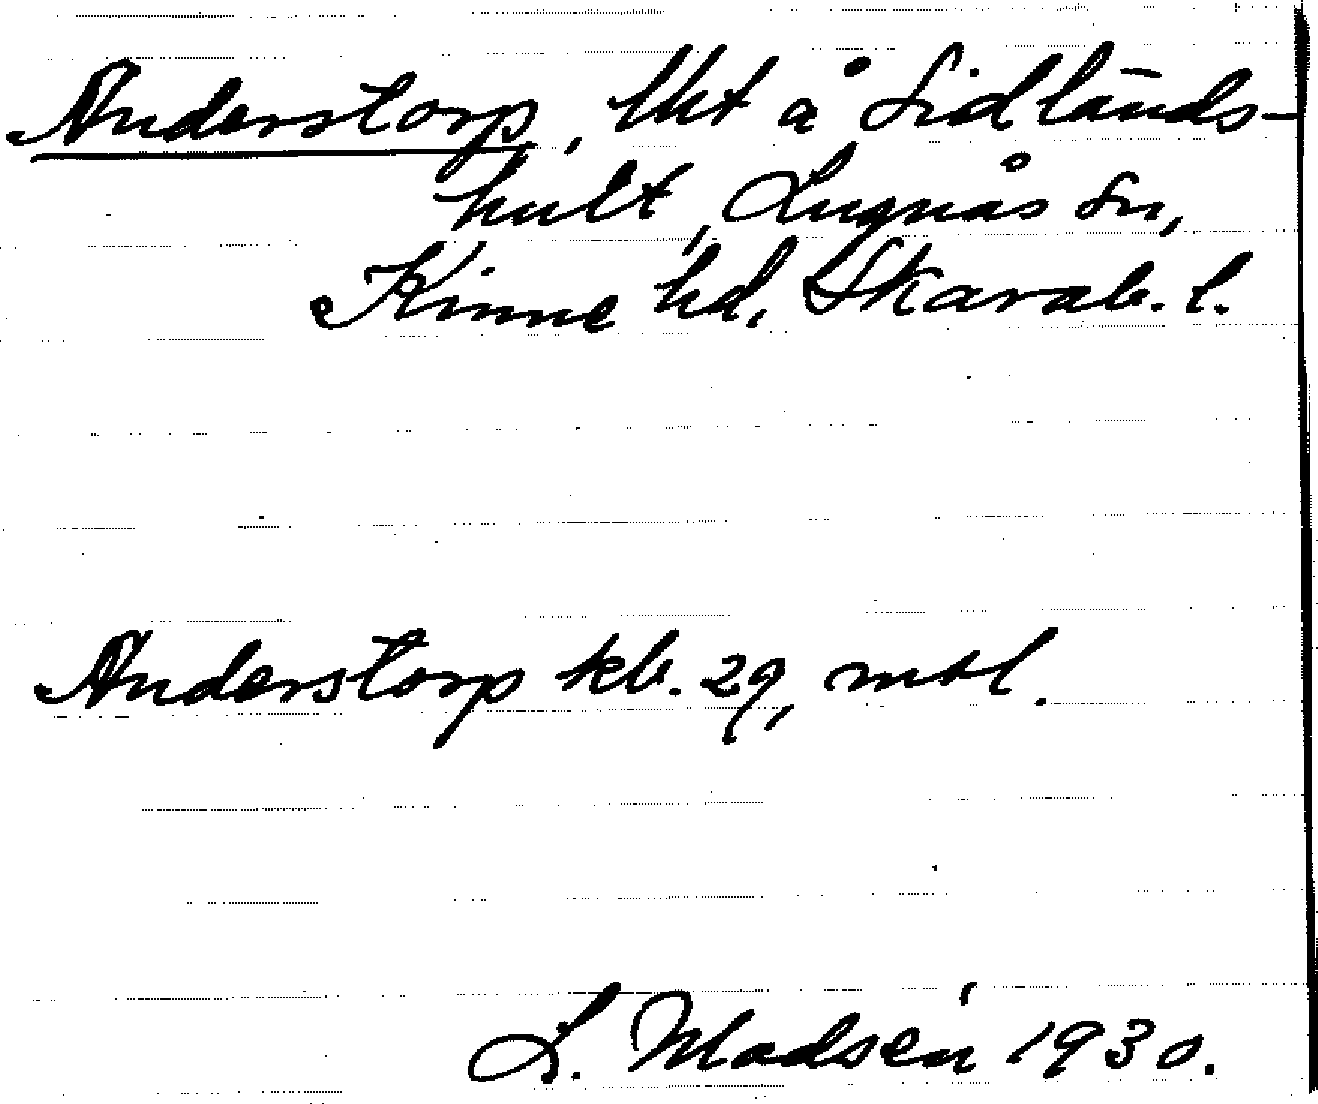 Anderstorp, lht å Sidlands-
hult, Lugnås sn,
Kinne hd, Skarab. l.
Anderstorp kb. 29, mtl.
L. Madsén 1930.